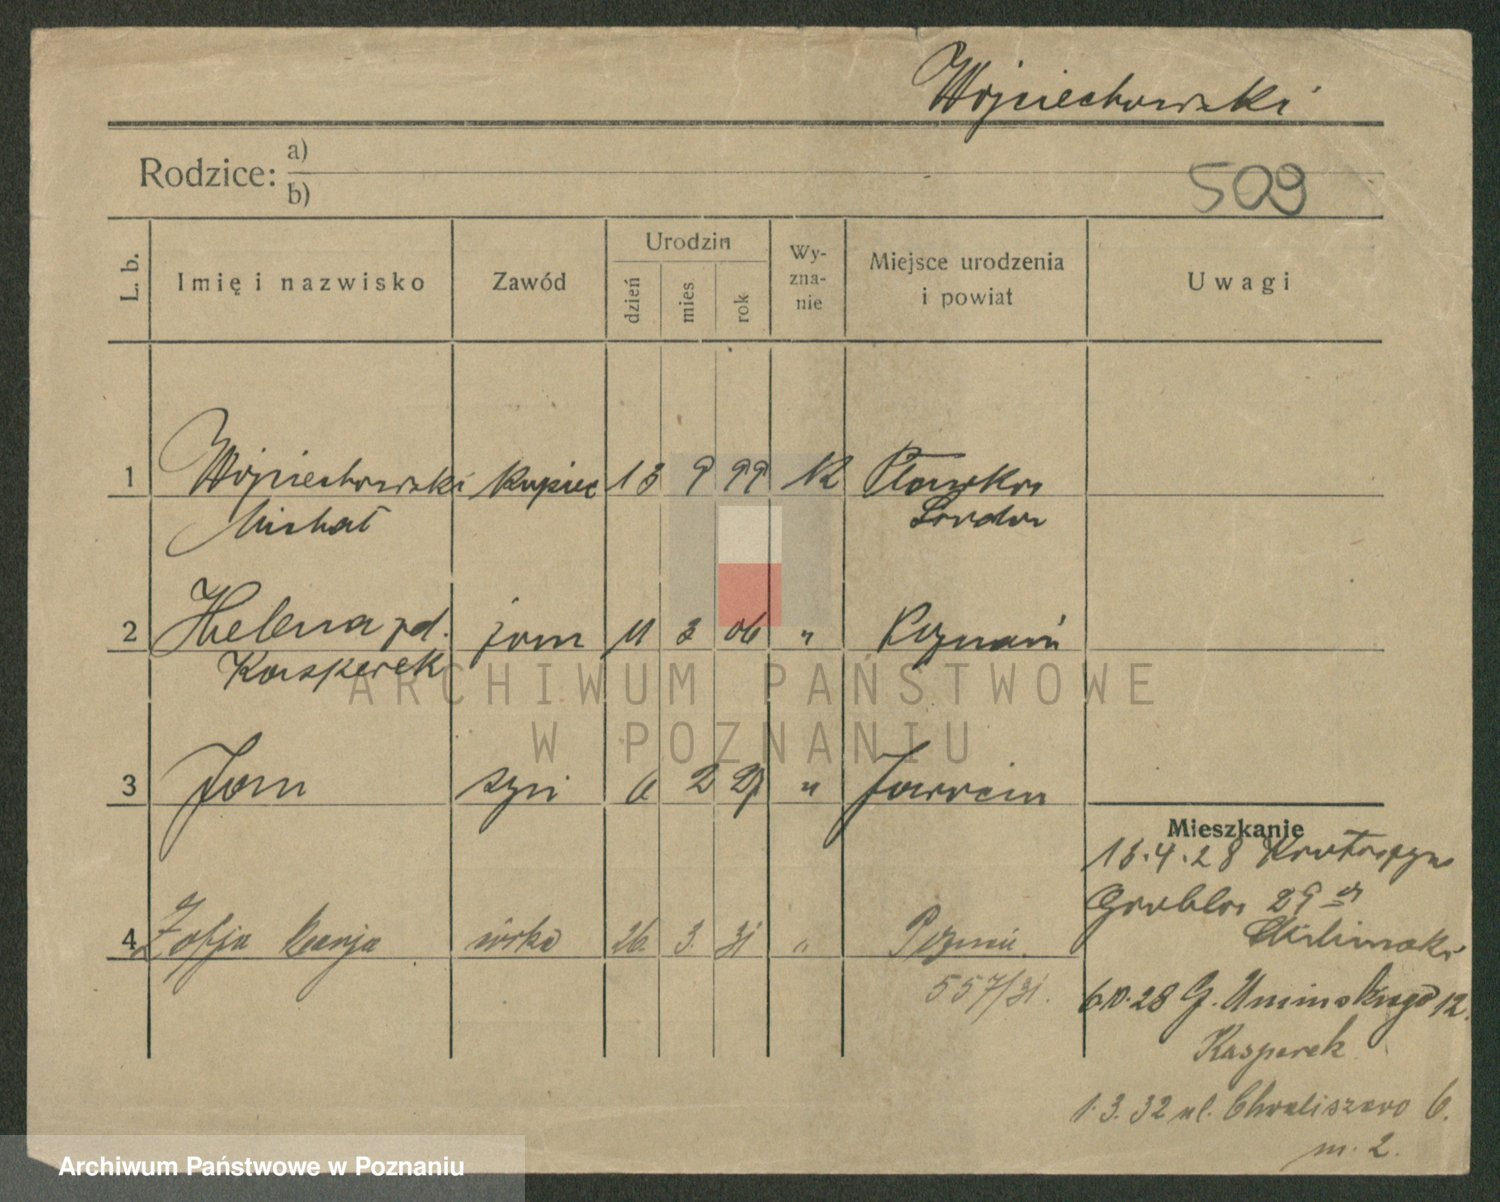 Wojciechowski
Rodzice: a)
b)
509
L. b.
Imię i nazwisko
Zawód
Urodzin
dzień
mies
rok
Wy-
zna-
nie
Miejsce urodzenia
i powiat
Uwagi
1 Wojciechowski kupiec 13 9 99
Michał
2 Helena zd. 11 3 06 " Poznań
Kasperek
3 Jan syn 6 2 27 " Jarocin
4 Zofja córka 26. 3. 31 " Poznań.
557/31.
Mieszkanie
16.4.28
Grobla 29
6.10.28 G. Umińskiego 12.
Kasperek
1.3.32 ul. Chwaliszewo 6.
m. 2.
ARCHIWUM PAŃSTWOWE
W POZNANIU
Archiwum Państwowe w Poznaniu